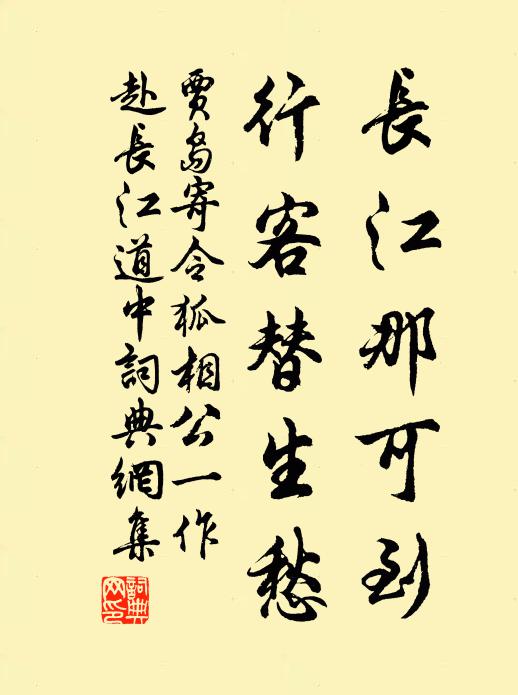 長江那可到
行客替生愁
賈島寄令狐相公一作
赴長江道中詞典網集
詞典
網印